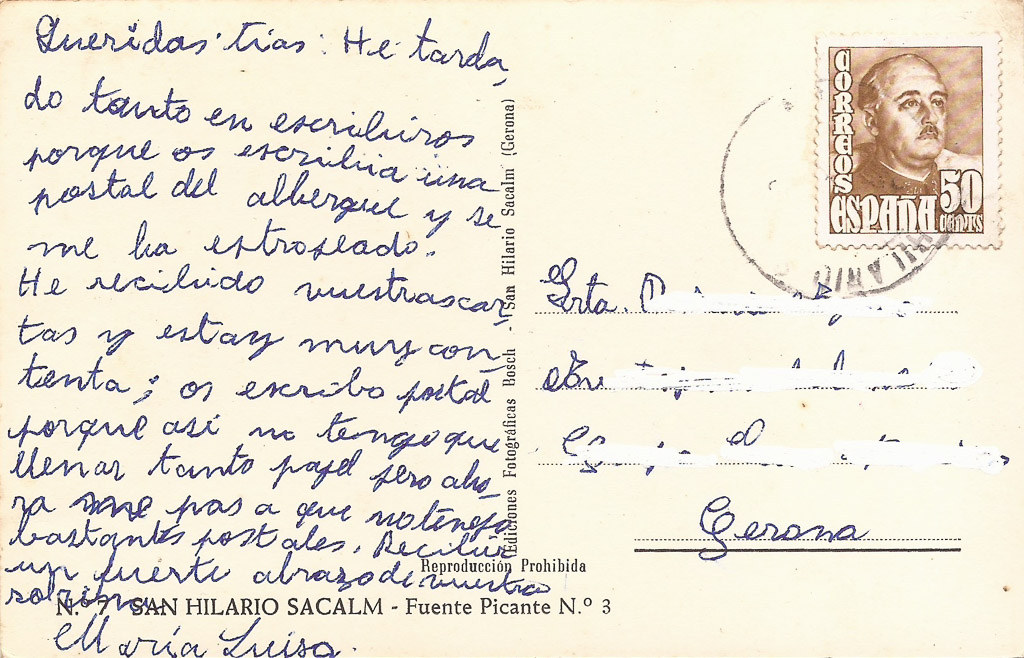 Queridas tías: He tarda,
do tanto en escribiros
porque os escribia una
postal del albergue y se
me ha estroseado.
He recibido vuestras car,
tas y estay muy con,
tenta; os escribo postal
porque así no tengo que
llenar tanto papel pero aho,
ra me pas a que no tengo
bastantes postales. Recibir
un fuerte abrazo de vuestra
sobrina
María Luisa.
N.º 7 SAN HILARIO SACALM - Fuente Picante N.º 3
Reproducción Prohibida
Ediciones Fotográficas Bosch - San Hilario Sacalm (Gerona)
CORREOS
ESPAÑA
50
CENTS
HILARIO
Srta.
Gerona